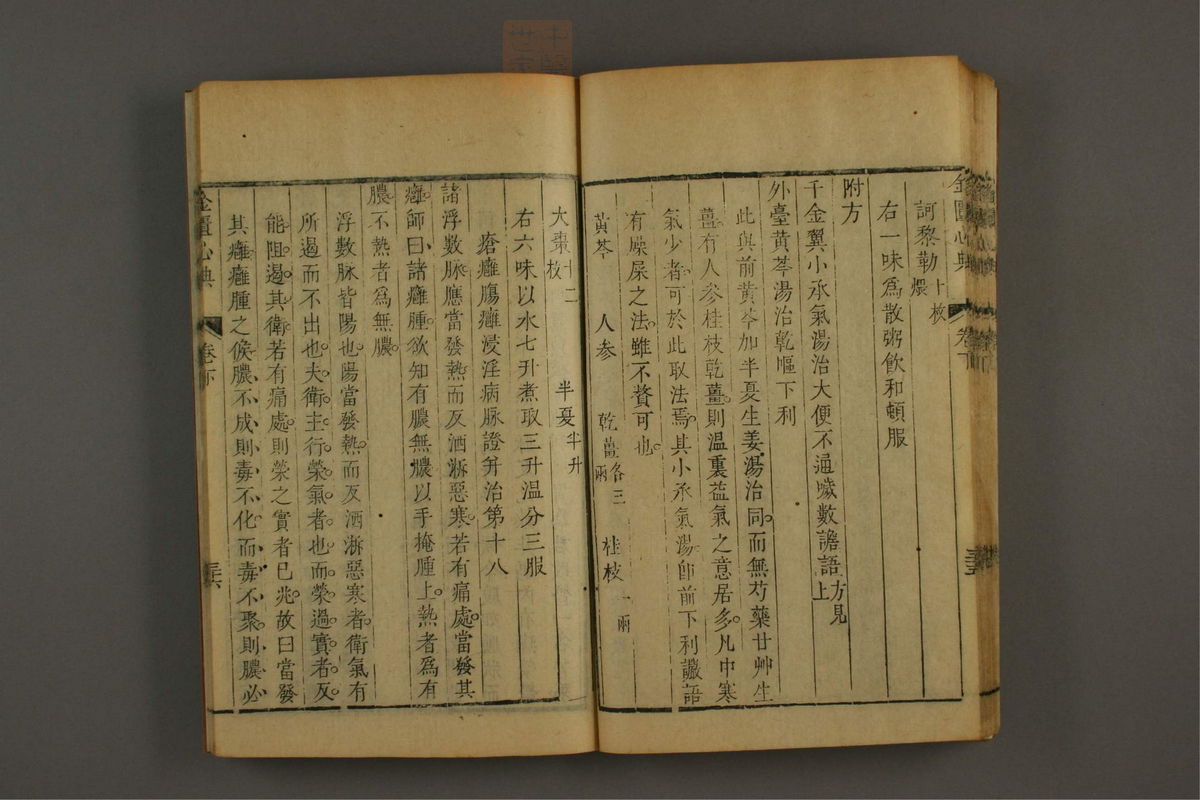 金匱心典 卷下 三五
訶黎勒十枚煨
右一味爲散粥飲和頓服
附方
千金翼小承氣湯治大便不通噦數譫語方見上
外臺黃芩湯治乾嘔下利
此與前黃芩加半夏生姜湯治同而無芍藥甘艸生
薑有人參桂枝乾薑則溫裏益氣之意居多凡中寒
氣少者可於此取法焉其小承氣湯卽前下利讝語
有燥屎之法雖不贅可也
黃芩 人參 乾薑各三兩 桂枝一兩
大棗十二枚 半夏半升
右六味以水七升煮取三升溫分三服
瘡癰腸癰浸淫病脉證并治第十八
諸浮數脉應當發熱而反洒淅惡寒若有痛處當發其
癰師曰諸癰腫欲知有膿無膿以手掩腫上熱者爲有
膿不熱者爲無膿
浮數脉皆陽也陽當發熱而反洒淅惡寒者衛氣有
所遏而不出也夫衛主行榮氣者也而榮過實者反
能阻遏其衛若有痛處則榮之實者已兆故曰當發
其癰癰腫之候膿不成則毒不化而毒不聚則膿必
金匱心典 卷下 三六